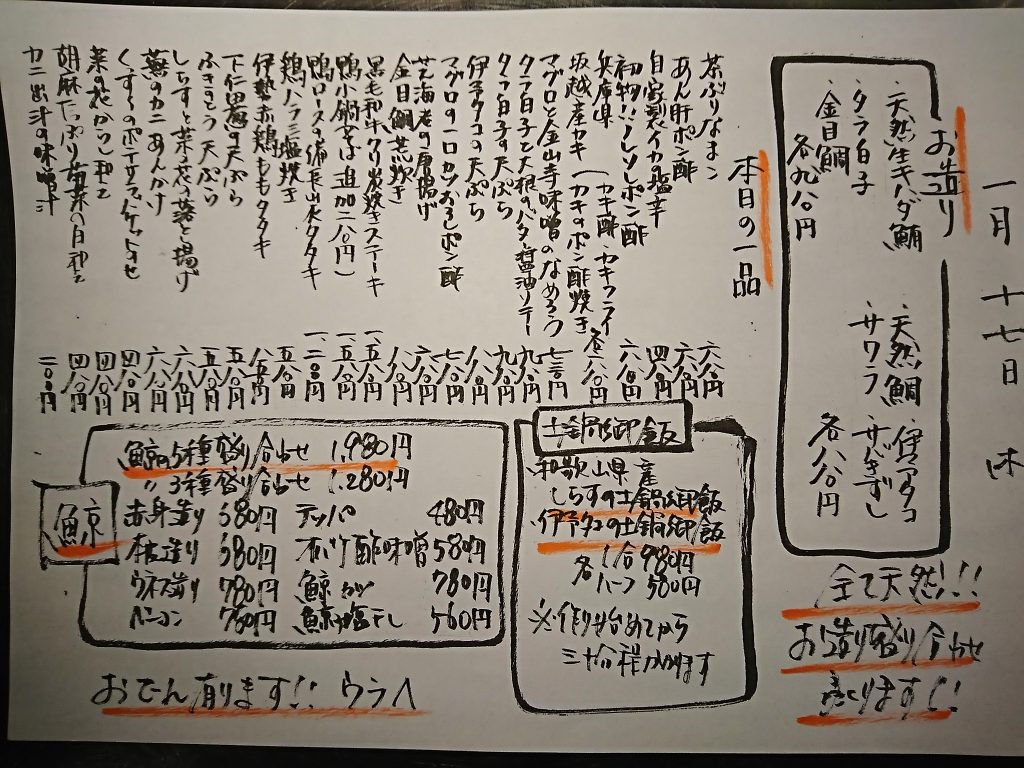 一月十七日 木
お造り
天然生キハダ鮪 天然鯛 伊予タコ
タラ白子 サワラ サバきずし
金目鯛
各九八〇円 各八八〇円
全て天然!!
お造り盛り合わせ
売ります!!
本日の一品
茶ぶりなまこ 六八〇円
あん肝ポン酢 六八〇円
自家製イカの塩辛 四八〇円
初物!!ノレソレポン酢 六八〇円
兵庫県 坂越産カキ (カキ酢・カキフライ カキのポン酢焼き 各六八〇円
マグロと金山寺味噌のなめろう 七八〇円
タラ白子と大根のバター醤油ソテー 九八〇円
タラ白子の天ぷら 九八〇円
伊予タコの天ぷら 八八〇円
マグロの一口カツおろしポン酢 七八〇円
芝海老の唐揚げ 六八〇円
金目鯛荒炊き 八八〇円
黒毛和牛クリ炭焼きステーキ 一、五八〇円
鴨小鍋(そば追加二八〇円) 一、五八〇円
鴨ロースの備長山水タタキ 一、二八〇円
鶏ハラミ塩焼き 五八〇円
伊勢赤鶏ももタタキ 八五〇円
下仁田葱の天ぷら 五八〇円
ふきのとう天ぷら 五八〇円
しらすと菜の花の落とし揚げ 六八〇円
蕪のカニあんかけ 六八〇円
くんすものポテサラバケットのせ 四八〇円
菜の花からし和え 四八〇円
胡麻たっぷり 菜の白和え 四八〇円
カニ出汁の味噌汁 二八〇円
土鍋御飯
和歌山県産
しらすの土鍋御飯
伊予タコの土鍋御飯
各 1合980円
ハーフ580円
※作り始めてから
三十分程かかります
鯨
鯨の5種盛り合わせ 1,980円
〃3種盛り合わせ 1.280円
赤身造り 580円 テッパ 480円
本皮造り 580円 オバケ酢味噌 580円
ウネス造り 780円 鯨カツ 780円
ベーコン 780円 鯨塩干し 560円
おでん有ります!! ウラへ